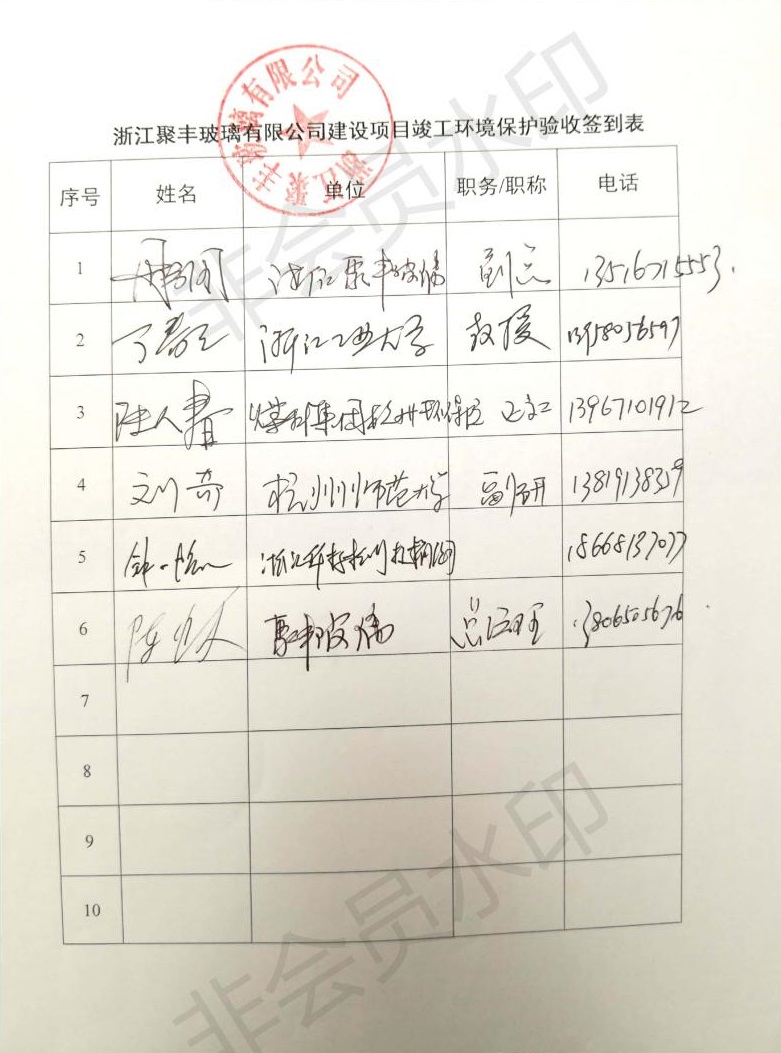 浙江聚丰玻璃有限公司
浙江聚丰玻璃有限公司建设项目竣工环境保护验收签到表
序号 姓名 单位 职务/职称 电话
1 浙江聚丰玻璃 副总 13516715553
2 丁春生 浙江工业大学 教授 13958056597
3 陆人 煤科集团杭州环保院 正高工 13967101912
4 刘奇 杭州师范大学 副研 13819138319
5 钟 18668137077
6 陈 聚丰玻璃 总经理 13806505676
7
8
9
10
非会员水印
非会员水印